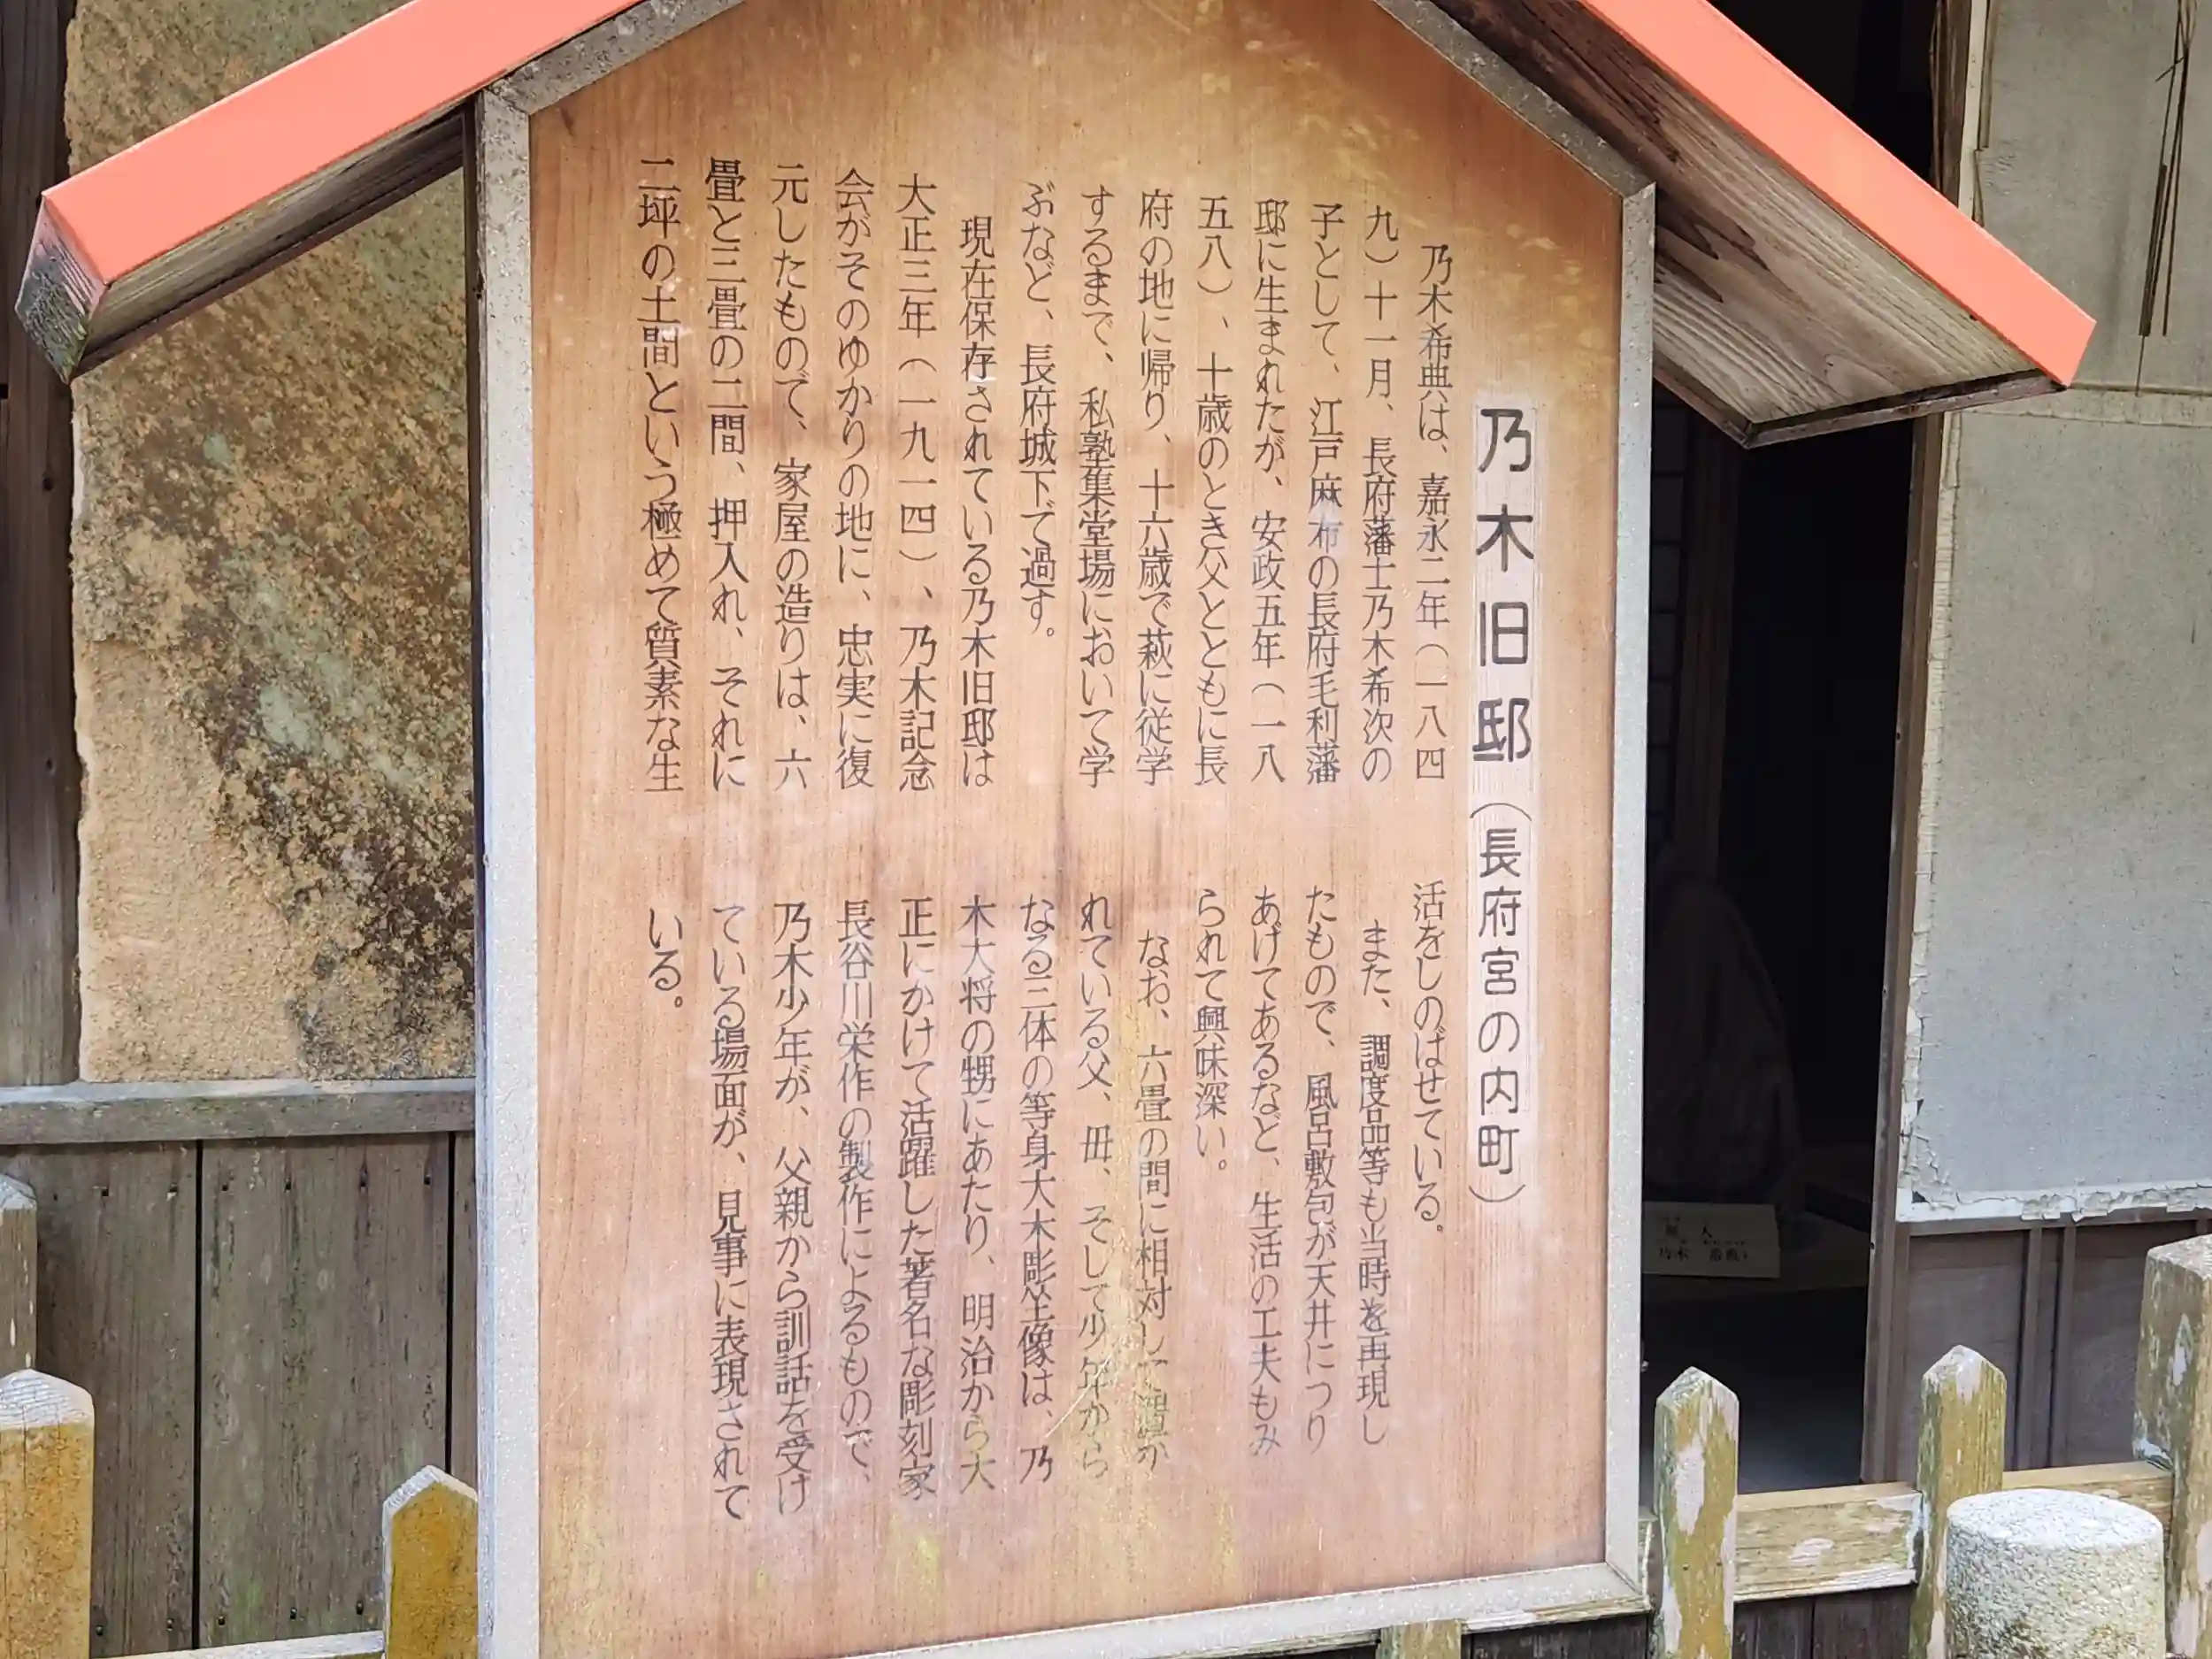 乃木旧邸(長府宮の内町)
乃木希典は、嘉永二年(一八四
九)十一月、長府藩士乃木希次の
子として、江戸麻布の長府毛利藩
邸に生まれたが、安政五年(一八
五八)、十歳のとき父とともに長
府の地に帰り、十六歳で萩に従学
するまで、私塾集童場において学
ぶなど、長府城下で過す。
現在保存されている乃木旧邸は
大正三年(一九一四)、乃木記念
会がそのゆかりの地に、忠実に復
元したもので、家屋の造りは、六
畳と三畳の二間、押入れ、それに
二坪の土間という極めて質素な生
活をしのばせている。
また、調度品等も当時を再現し
たもので、風呂敷包が天井につり
あげてあるなど、生活の工夫もみ
られて興味深い。
なお、六畳の間に相対して置か
れている父、毋、そして少年から
なる三体の等身大木彫坐像は、乃
木大将の甥にあたり、明治から大
正にかけて活躍した著名な彫刻家
長谷川栄作の製作によるもので、
乃木少年が、父親から訓話を受け
ている場面が、見事に表現されて
いる。